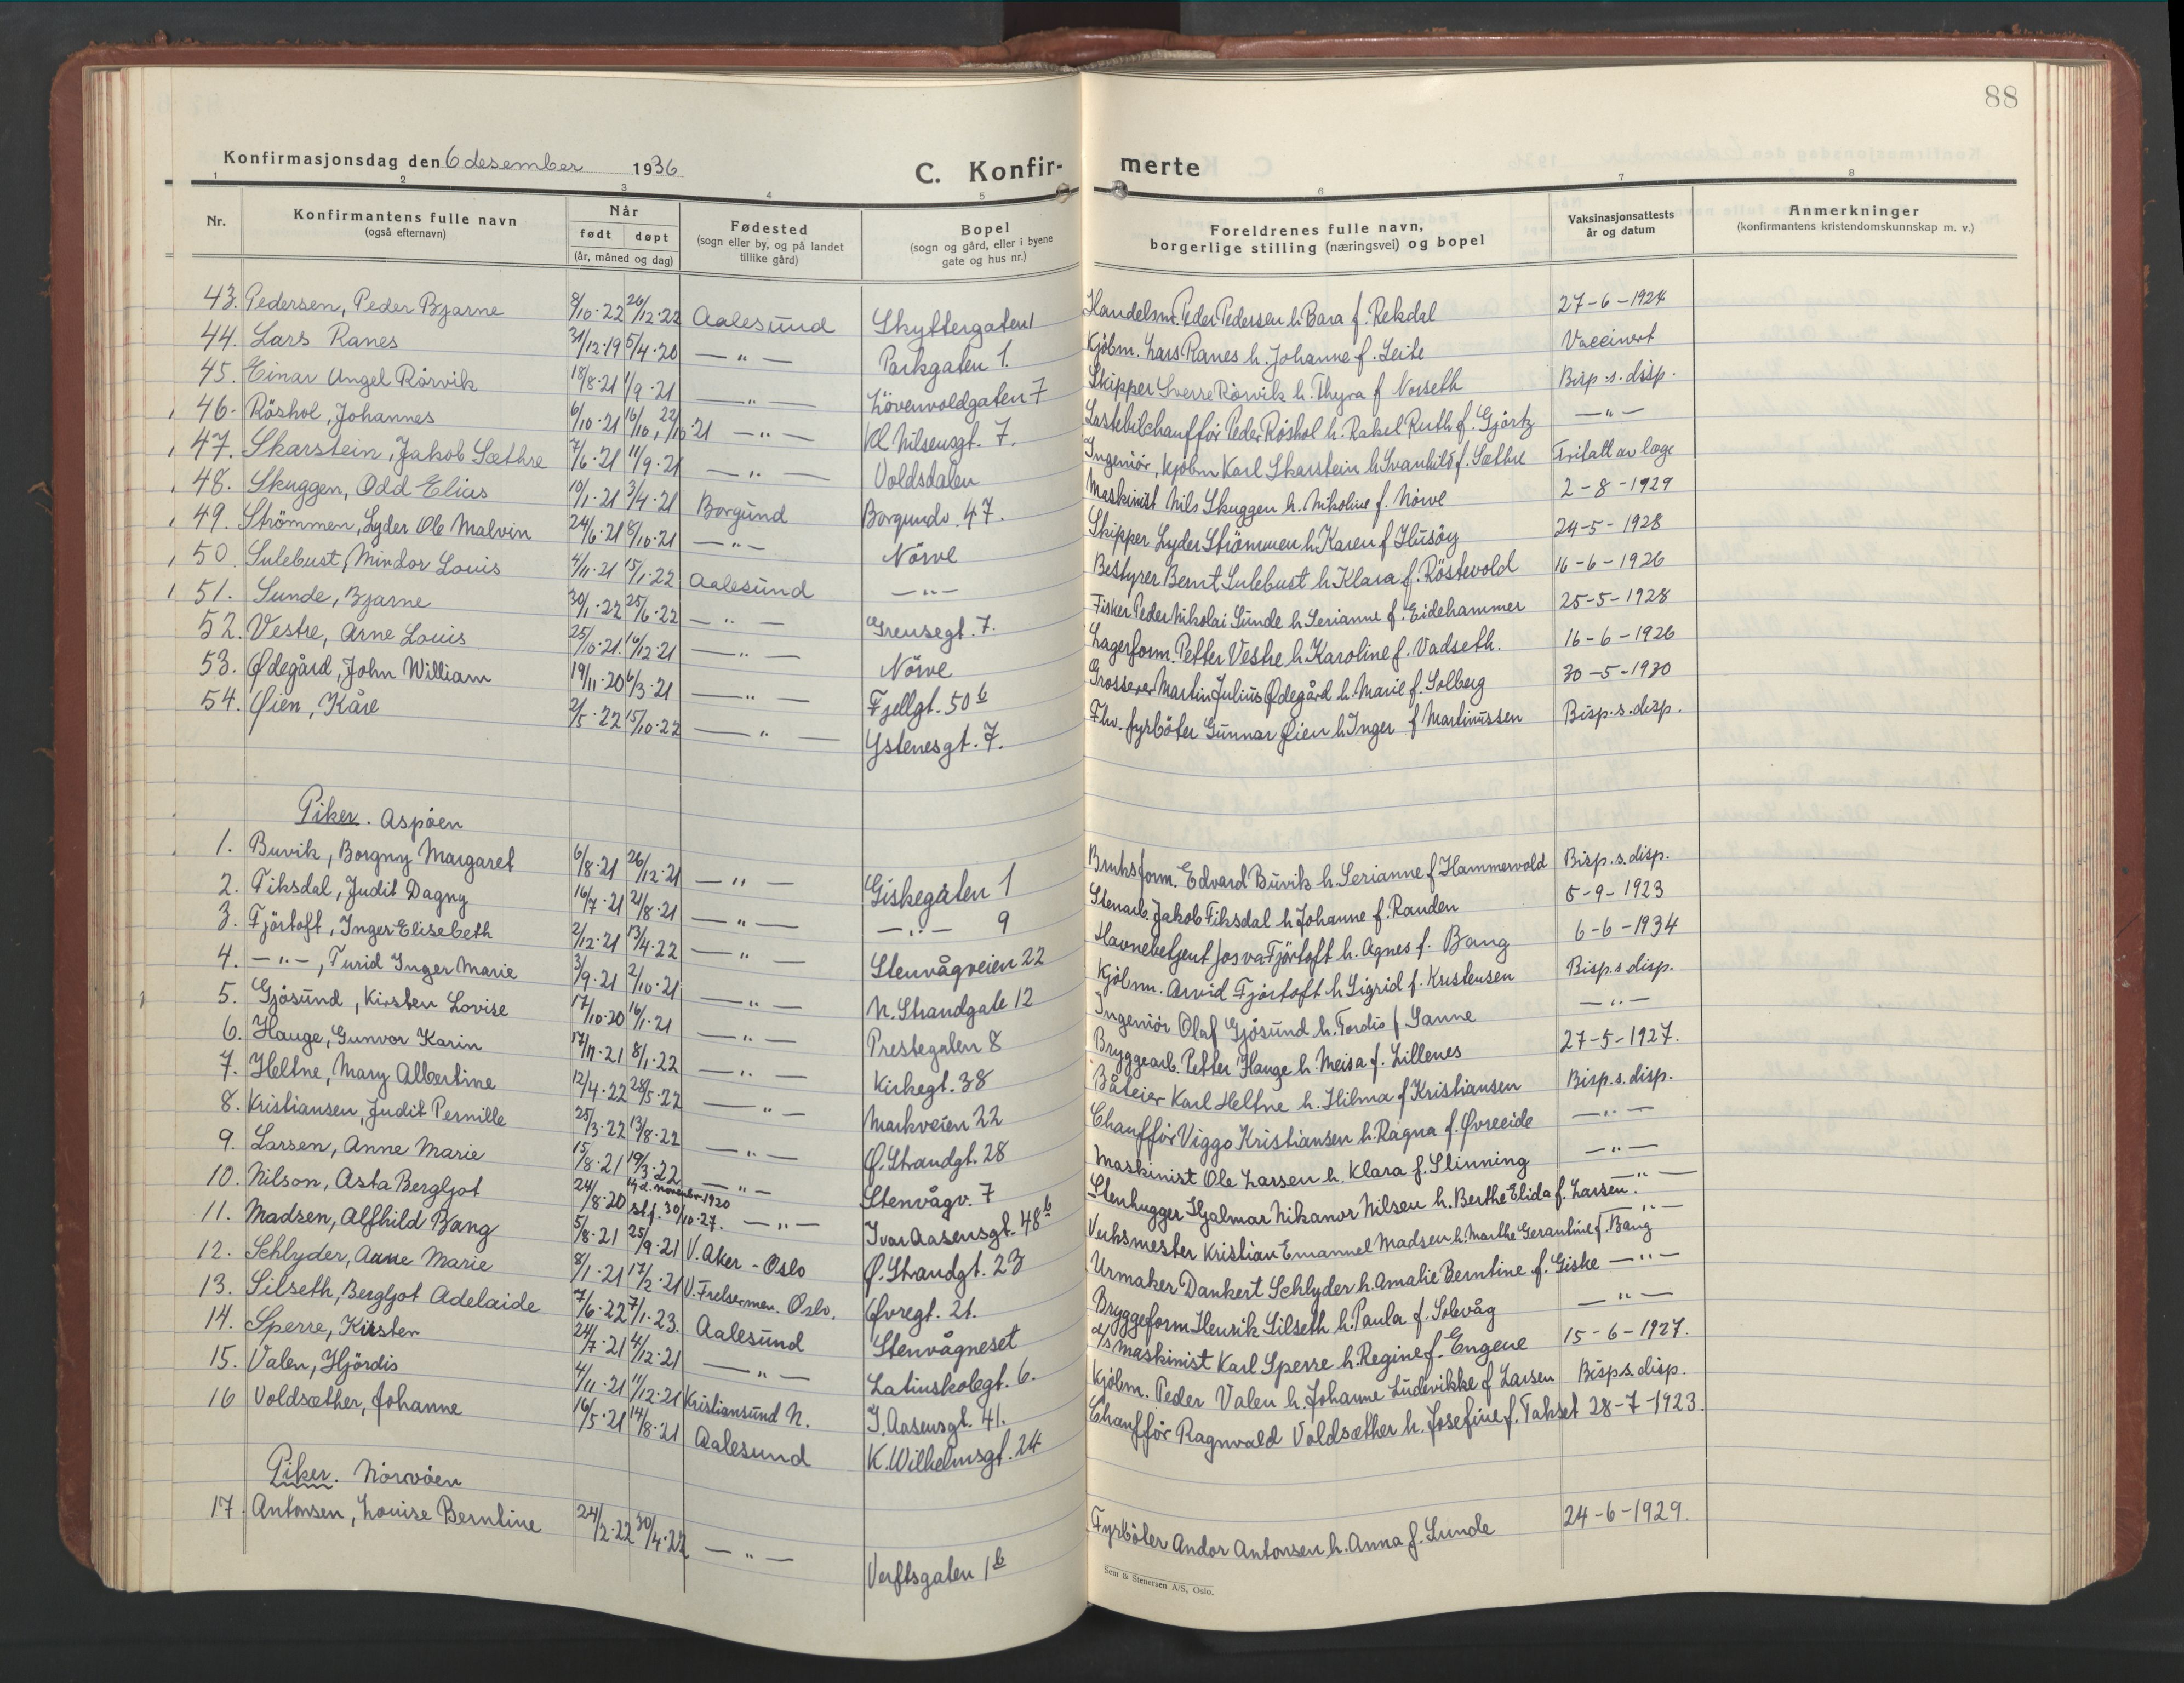 88
Konfirmasjonsdag den 6 desember 1936
C. Konfir-
merte
1 2 3 4 5 6 7 8
Nr.
Konfirmantens fulle navn
(også efternavn)
Når
født døpt
(år, måned og dag)
Fødested
(sogn eller by, og på landet
tillike gård)
Bopel
(sogn og gård, eller i byene
gate og hus nr.)
Foreldrenes fulle navn,
borgerlige stilling (næringsvei) og bopel
Vaksinasjonsattests
år og datum
Anmerkninger
(konfirmantens kristendomskunnskap m. v.)
43. Pedersen, Peder Bjarne 8/10-22 26/12-22 Aalesund Skyttergaten 1 Handelsm. Peder Pedersen h. Bara f. Rekdal 27-6-1924
44. Lars Ranes 31/12-19 5/4-20 —"— Parkgaten 1. Kjöbm. Lars Ranes h. Johanne f. Leite Vaccinert
45. Einar Angel Rörvik 18/8-21 1/9-21 —"— Lövenvoldgaten 7 Skipper Sverre Rörvik h. Thyra f Norseth Bisp.s.disp.
46. Röshol, Johannes 6/10-21 16/10, 22/10-21 —"— Kl. Nilsensgt. 7. Lastebilchaufför Peder Röshol h. Rakel Ruth f. Gjørtz —"—
47. Skarstein, Jakob Sæthre 7/6-21 11/9-21 —"— Voldsdalen Ingeniör, kjöbm Karl Skarstein h. Svanhild f. Sæthre Fritatt av læge
48. Skuggen, Odd Elias 10/1-21 3/4-21 Borgund Borgundv. 47. Maskinist Nils Skuggen h. Nikoline f. Nörve 2-8-1929
49. Strömmen, Lyder Ole Malvin 24/6-21 8/10-21 —"— Nörve Skipper Lyder Strömmen h. Karen f Husöy 24-5-1928
50. Sulebust, Mindor Louis 4/11-21 15/1-22 Aalesund —"— Bestyrer Bernt Sulebust h. Klara f. Röstevold 16-6-1926
51. Sunde, Bjarne 30/1-22 25/6-22 —"— Grensegt. 7. Fisker Peder Nikolai Sunde h. Serianne f. Eidehammer 25-5-1928
52. Vestre, Arne Louis 25/10-21 16/12-21 —"— Nörve Lagerform. Petter Vestre h. Karoline f. Vadseth. 16-6-1926
53. Ødegård, John William 19/11-20 6/3-21 —"— Fjellgt. 50 b Grosserer Martin Julius Ødegård h. Marie f. Solberg 30-5-1930
54. Øien, Kåre 2/5-22 15/10-22 —"— Ystenesgt. 7. Fhv. fyrböter Gunnar Øien h. Inger f Martinussen Bisp.s.disp.
Piker. Aspöen
1. Buvik, Borgny Margaret 6/8-21 26/12-21 —"— Giskegaten 1 Bruksform. Edvard Buvik h. Serianne f Hammervold Bisp.s.disp.
2. Fiksdal, Judit Dagny 16/7-21 21/8-21 —"— —"— 9 Stenarb. Jakob Fiksdal h. Johanne f. Randen 5-9-1923
3. Fjörtoft, Inger Elisebeth 2/12-21 13/4-22 —"— Stenvågveien 22 Havnebetjent Josva Fjörtoft h. Agnes f. Bang 6-6-1934
4. —"—, Turid Inger Marie 3/9-21 2/10-21 —"— N. Strandgate 12 Kjöbm. Arvid Fjörtoft h. Sigrid f. Kristensen Bisp.s disp.
5. Gjösund, Kirsten Lovise 17/10-20 16/1-21 —"— Prestegaten 8 Ingeniör Olaf Gjösund h. Tordis f Sanne —"—
6. Hauge, Gunvor Karin 17/11-21 8/1-22 —"— Kirkegt. 38 Bryggearb. Petter Hauge h. Meisa f. Lillenes 27-5-1927.
7. Heltne, Mary Albertine 12/4-22 28/5-22 —"— Markveien 22 Båteier Karl Heltne h. Hilma f Kristiansen Bisp.s.disp.
8. Kristiansen, Judit Pernille 25/3-22 13/8-22 —"— Ø. Strandgt. 28 Chaufför Viggo Kristiansen h. Ragna f. Øvreeide —"—
9. Larsen, Anne Marie 15/8-21 19/3-22 —"— Stenvågv. 7 Maskinist Ole Larsen h. Klara f. Slinning —"—
10. Nilson, Asta Bergljot 24/8-20 14 d. november 1920 st.f. 30/10-27. —"— Ivar Aasensgt. 48 b Stenhugger Hjalmar Nikanor Nilsen h. Berthe Elida f. Larsen. —"—
11. Madsen, Alfhild Bang 5/8-21 25/9-21 V. Aker - Oslo Ø. Strandgt. 23 Verksmester Kristian Emanuel Madsen h. Marthe Gerantine f. Bang —"—
12. Schlyder, Anne Marie 8/1-21 17/2-21 V. Frelsermen. Oslo. Øvregt. 21. Urmaker Dankert Schlyder h. Amalie Berntine f. Giske —"—
13. Silseth, Bergljot Adelaide 7/6-22 7/1-23. Aalesund Stenvågneset Bryggeform Henrik Silseth h. Paula f. Solevåg —"—
14. Sperre, Kirsten 24/7-21 4/12-21 —"— Latinskolegt. 6. d/s maskinist Karl Sperre h. Regine f. Engene 15-6-1927.
15. Valen, Hjördis 4/11-21 11/12-21 Kristiansund N. I. Aasensgt. 41. Kjöbm. Peder Valen h. Johanne Ludevikke f Larsen Bisp.s.disp.
16 Voldsæther, Johanne 16/5-21 14/8-21 Aalesund K. Wilhelmsgt. 24 Chaufför Ragnvald Voldsæther h. Josefine f. Takset 28-7-1923.
Piker. Nörvöen
17. Antonsen, Louise Berntine 24/2-22 30/4-22 —"— Verftsgaten 1 b Fyrböter Andor Antonsen h. Anna f. Sunde 24-6-1929.
Sem & Stenersen A/S, Oslo.